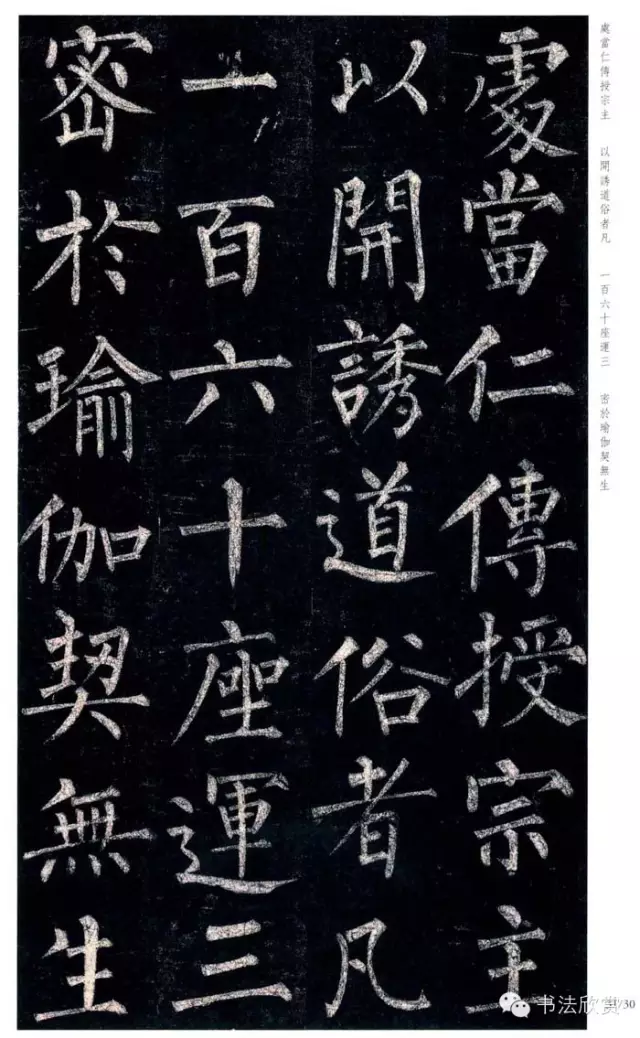 處當仁傳授宗主
以開誘道俗者凡
一百六十座運三
密於瑜伽契無生
處當仁傳授宗主 以開誘道俗者凡 一百六十座運三 密於瑜伽契無生
书法欣赏
/30